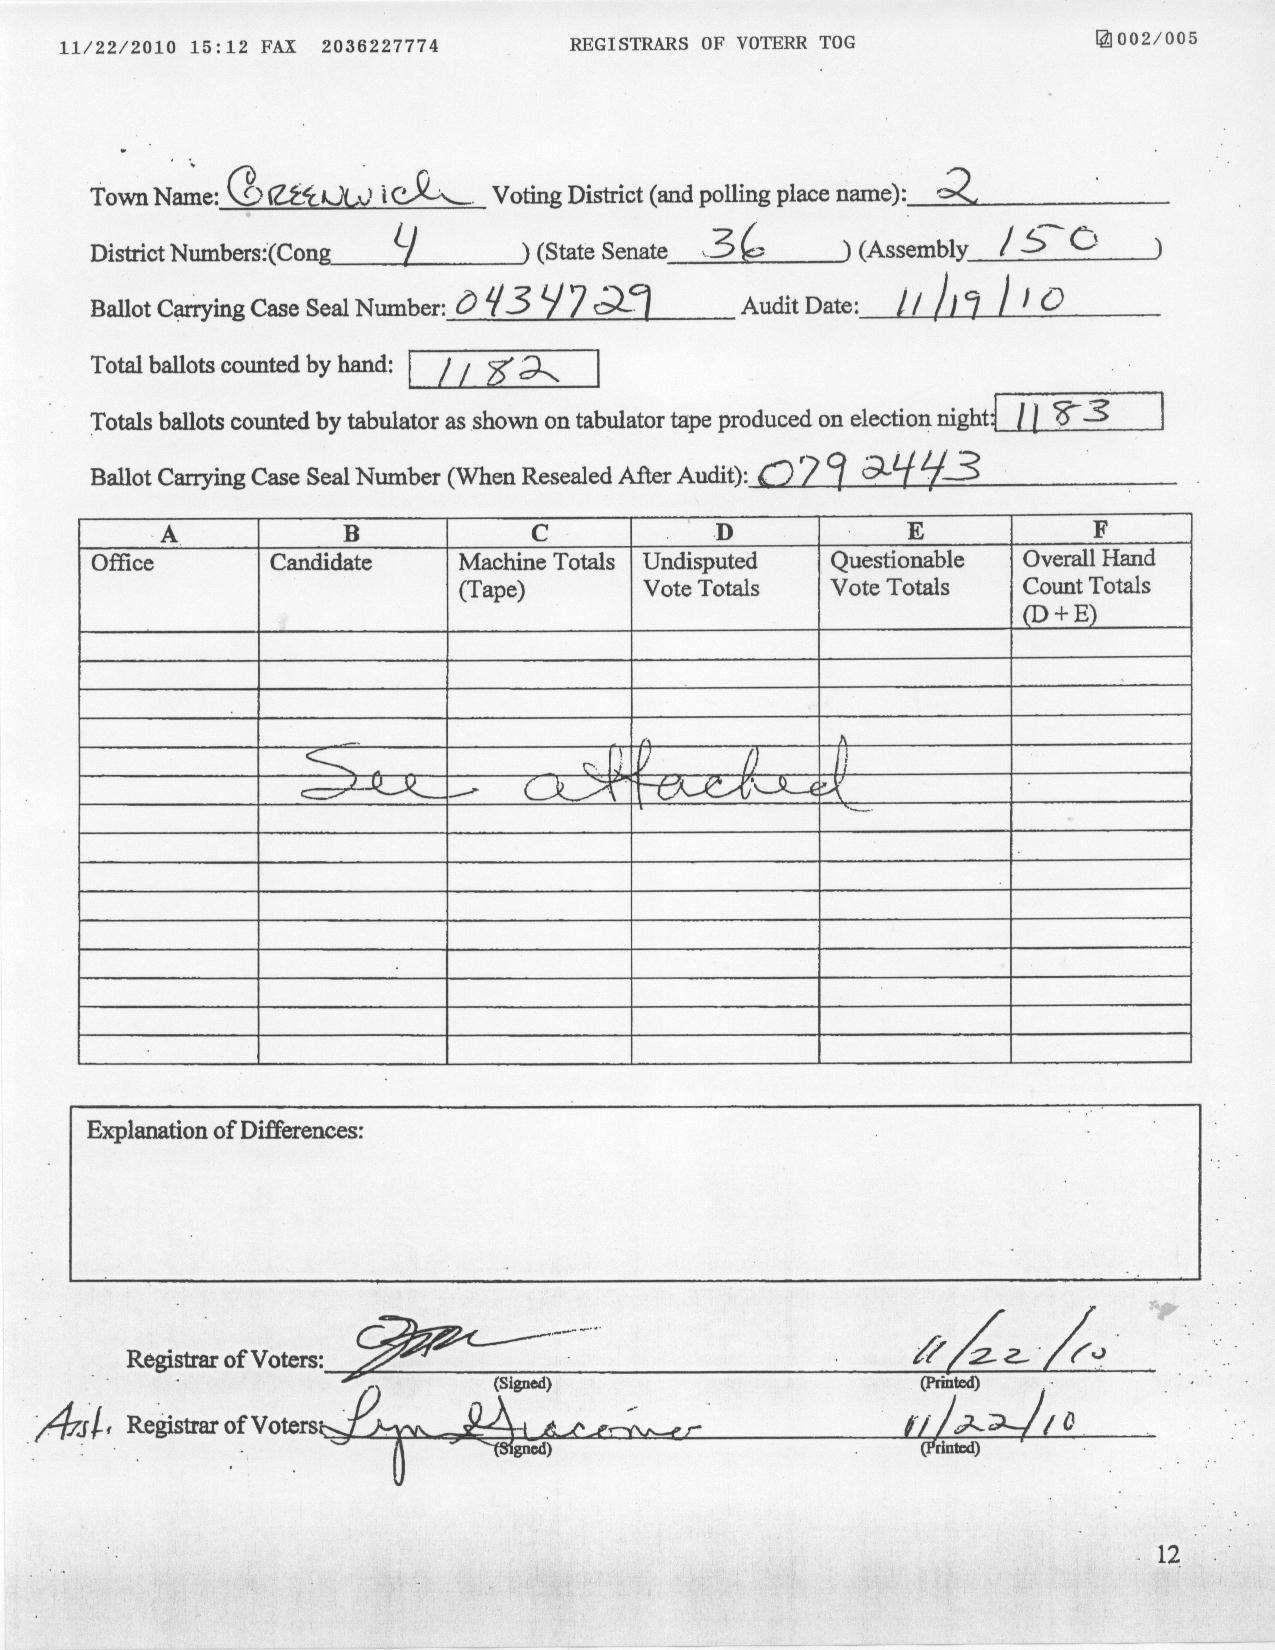 11/22/2010 15:12 FAX 2036227774 REGISTRARS OF VOTERR TOG 002/005
Town Name: Greenwich Voting District (and polling place name): 2
District Numbers:(Cong 4 ) (State Senate 36 ) (Assembly 150 )
Ballot Carrying Case Seal Number: 0434729 Audit Date: 11/19/10
Total ballots counted by hand: 1182
Totals ballots counted by tabulator as shown on tabulator tape produced on election night: 1183
Ballot Carrying Case Seal Number (When Resealed After Audit): 0792443
A B C D E F
Office Candidate Machine Totals Undisputed Questionable Overall Hand
(Tape) Vote Totals Vote Totals Count Totals
(D + E)
See attached
Explanation of Differences:
Registrar of Voters: 11/22/10
(Signed) (Printed)
Asst. Registrar of Voters: Lyn Giacomo 11/22/10
(Signed) (Printed)
12